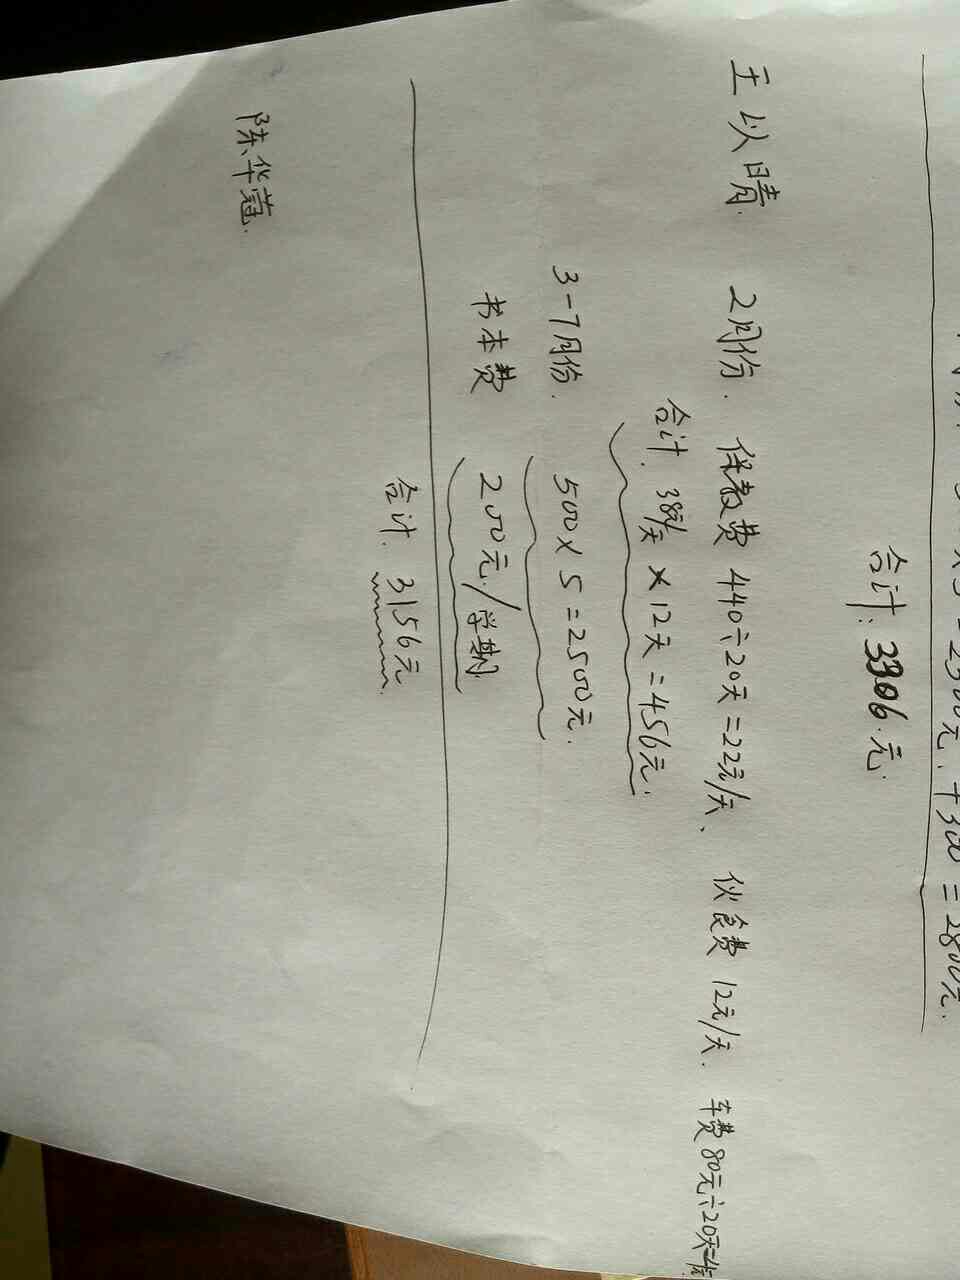 500元.+300=2800元.
合计:3306.元.
王以晴. 2月份. 保教费440÷20天=22元/天、 伙食费12元/天. 车费80元÷20天=4元
合计. 38元/天×12天=456元.
3-7月份. 500×5=2500元.
书本费 200元./学期
合计. 3156元.
陈华蔻.